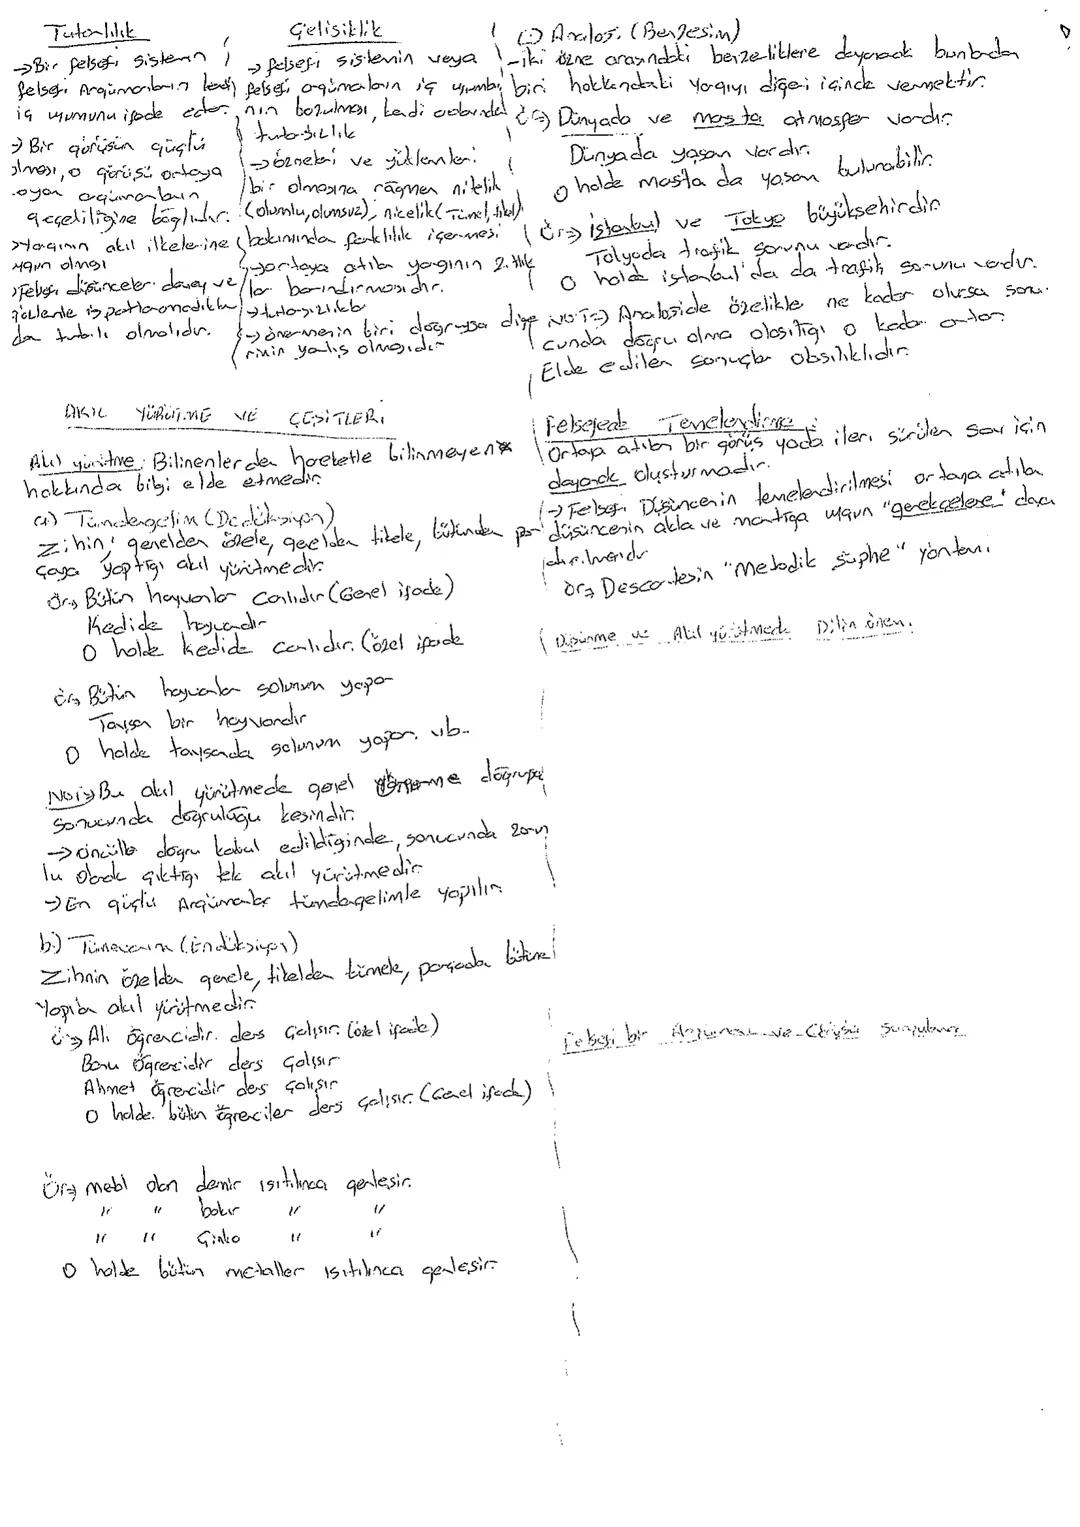 Tutarlılık
→Bir felsefi sistemin
felsefi Argümanların kendi
iç uyumunu ifade eder.
→Bir görüşün güçlü
olması, o görüşü ortaya
koyan argümanların
geçerliliğine bağlıdır.
→Yargının akıl ilkelerine
uygun olması
→Felsefi düşünceler deney ve
gözlemle ispatlanamadıkları
da tutarlı olmalıdır.
Çelişiklik
→felsefi sistemin veya
felsefi argümanların iç uyumu
nın bozulması, kendi aralarındaki
tutarsızlık
→özneleri ve yüklemleri
bir olmasına rağmen nitelik
(olumlu, olumsuz), nicelik (Tümel, tikel)
bakımından farklılık içermesi
→ortaya atılan yargının
barındırmasıdır.
→tutarsızlıktır
→önermenin biri doğruysa diğe
rinin yanlış olmasıdır
c) Analoji (Benzeşim)
-iki özne arasındaki benzerliklere dayanarak bunlardan
biri hakkındaki yargıyı diğeri içinde vermektir.
Ör→ Dünyada ve marsta atmosfer vardır.
Dünyada yaşam vardır.
O halde marsta da yaşam bulunabilir.
Ör→ İstanbul ve Tokyo büyükşehirdir.
Tokyoda trafik sorunu vardır.
O halde istanbul'da da trafik sorunu vardır.
NOT→ Analojide özelikler ne kadar olursa sonu-
cunda doğru olma olasılığı o kadar artar.
Elde edilen sonuçlar olasılıklıdır.
AKIL YÜRÜTME VE ÇEŞİTLERİ
Akıl yürütme: Bilinenlerden hareketle bilinmeyen
hakkında bilgi elde etmedir.
a) Tümdengelim (Dedüksiyon)
Zihin, genelden özele, genelden tikele, bütünden par
çaya yaptığı akıl yürütmedir.
Ör→ Bütün hayvanlar canlıdır (Genel ifade)
Kedide hayvandır
O halde kedide canlıdır. (özel ifade
Ör→ Bütün hayvanlar solunum yapar
Tavşan bir hayvandır
O halde tavşanda solunum yapar. vb.
NOT→ Bu akıl yürütmede genel önerme doğruysa
sonucunda doğruluğu kesindir.
→öncüller doğru kabul edildiğinde, sonucunda zorun
lu olarak çıktığı tek akıl yürütmedir.
→En güçlü Argümanlar tümdengelimle yapılır.
b) Tümevarım (Endüksiyon)
Zihnin özelden genele, tikelden tümele, parçadan bütüne
Yapılan akıl yürütmedir.
Ör→ Ali öğrencidir. ders çalışır. (özel ifade)
Banu öğrencidir ders çalışır
Ahmet öğrencidir ders çalışır
O halde. bütün öğrenciler ders çalışır. (Genel ifade)
Ör→ metal olan demir ısıtılınca genleşir.
" " bakır " "
" " Çinko " "
O halde bütün metaller ısıtılınca genleşir.
Felsefede Temellendirme :
Ortaya atılan bir görüş yada ileri sürülen sav için
dayanak oluşturmadır.
→Felsefi Düşüncenin temellendirilmesi ortaya atılan
düşüncenin akla ve mantığa uygun "gerekçelere" daya
Ör→ Descartesin "Metodik şüphe" yöntemi
Düşünme ve Akıl yürütmede Dilin önemi
Felsefi bir Argümanı ve Görüşü sorgulama